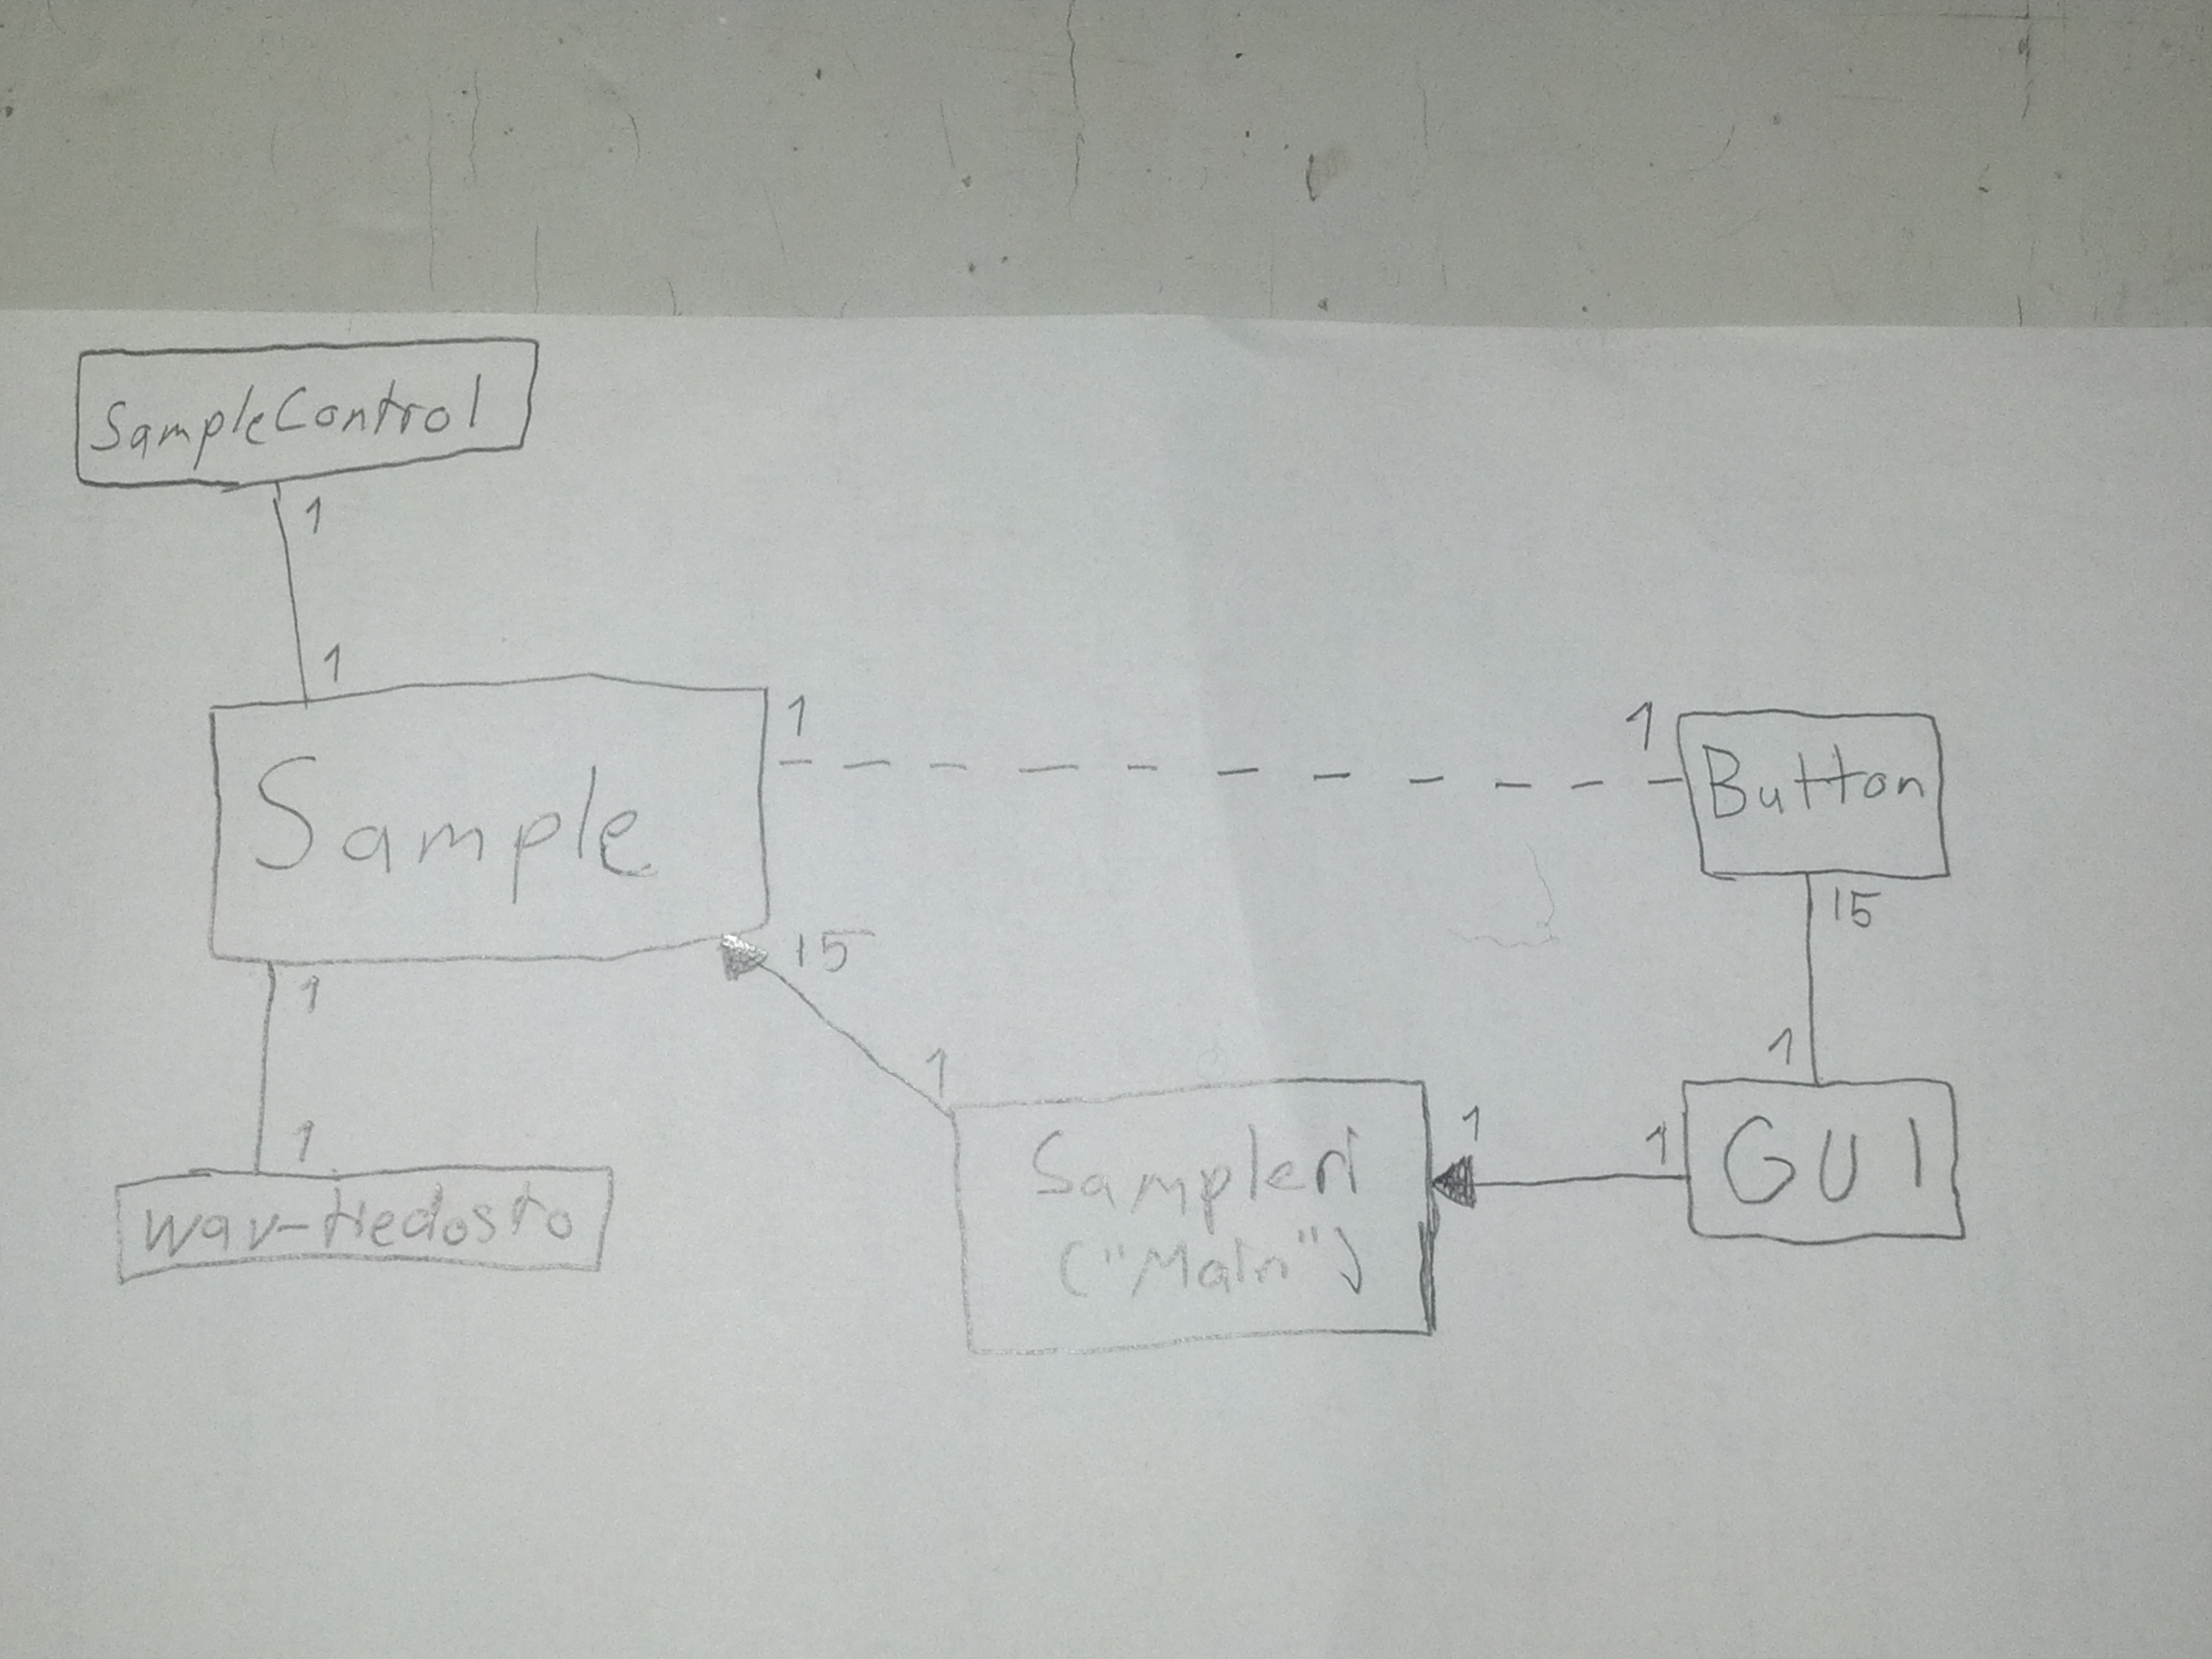 SampleControl
1
1
Sample
1
1
Button
15
15
1
1
1
1
1
1
GUI
wav-tiedosto
Sampleri
("Main")